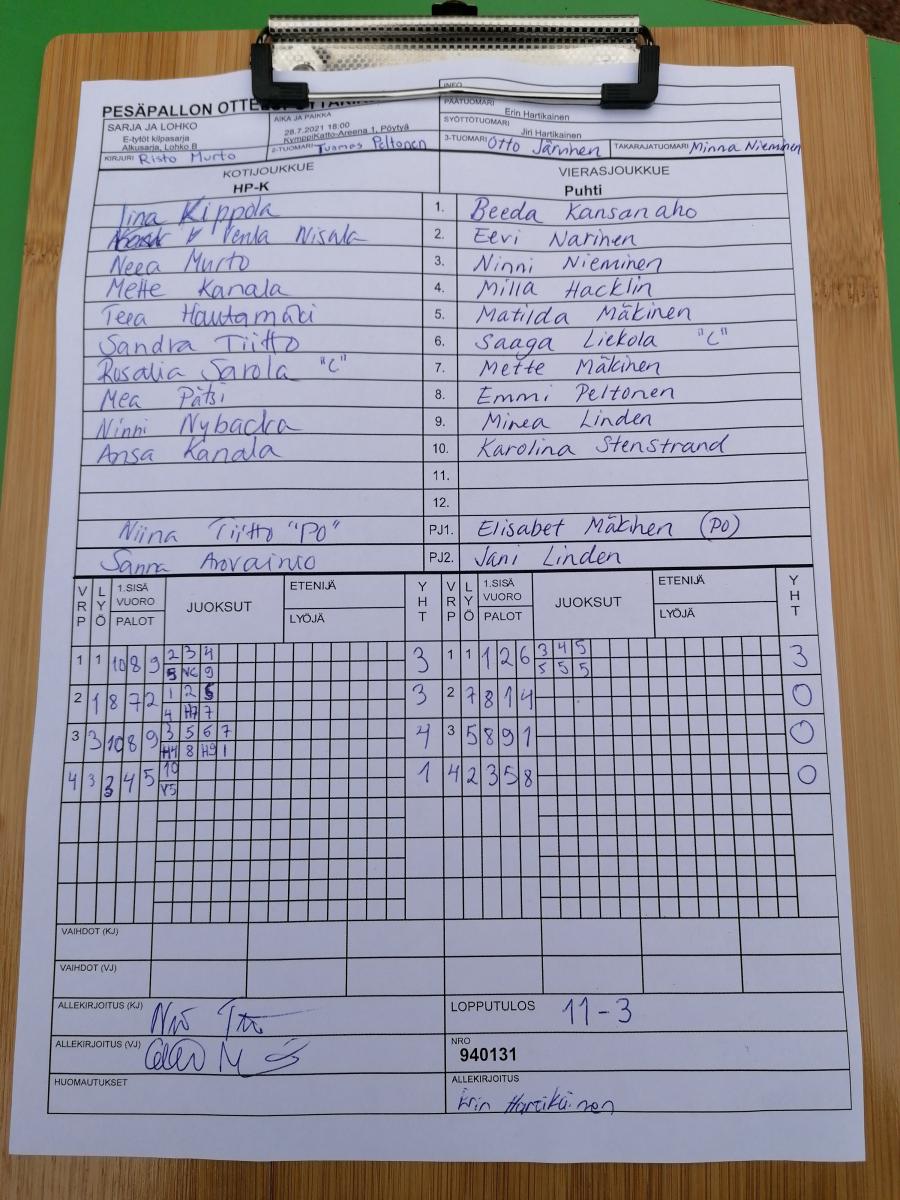 PESÄPALLON
INFO
SARJA JA LOHKO
E-tytöt kilpasarja
Alkusarja, Lohko B
AIKA JA PAIKKA
28.7.2021 18:00
KymppiKatto-Areena 1, Pöytyä
PÄÄTUOMARI Erin Hartikainen
SYÖTTÖTUOMARI Jiri Hartikainen
KIRJURI Risto Murto 2-TUOMARI Tuomas Peltonen 3-TUOMARI Otto Järvinen TAKARAJATUOMARI Minna Nieminen
KOTIJOUKKUE VIERASJOUKKUE
HP-K Puhti
Iina Kippola 1. Beeda Kansanaho
Venla Nisula 2. Eevi Narinen
Neea Murto 3. Ninni Nieminen
Mette Kanala 4. Milla Hacklin
Teea Hautamäki 5. Matilda Mäkinen
Sandra Tiitto 6. Saaga Liekola "C"
Rosalia Sarola "C" 7. Mette Mäkinen
Mea Pätsi 8. Emmi Peltonen
Ninni Nybacka 9. Minea Linden
Ansa Kanala 10. Karolina Stenstrand
11.
12.
Niina Tiitto "PO" PJ1. Elisabet Mäkinen (PO)
Sanna Arovainio PJ2. Jani Linden
VRP LYÖ 1.SISÄ VUORO PALOT JUOKSUT ETENIJÄ LYÖJÄ YHT VRP LYÖ 1.SISÄ VUORO PALOT JUOKSUT ETENIJÄ LYÖJÄ YHT
1 1 10 8 9 2 3 4 3 1 1 1 2 6 3 4 5 3
5 VC 9 5 5 5
2 1 8 7 2 1 2 3 2 7 8 1 4 0
4 H7 7
3 3 10 8 9 3 5 6 7 4 3 5 8 9 1 0
H4 8 H9 1
4 3 3 4 5 10 1 4 2 3 5 8 0
V5
VAIHDOT (KJ)
VAIHDOT (VJ)
ALLEKIRJOITUS (KJ) LOPPUTULOS 11-3
ALLEKIRJOITUS (VJ) NRO 940131
HUOMAUTUKSET ALLEKIRJOITUS Erin Hartikainen